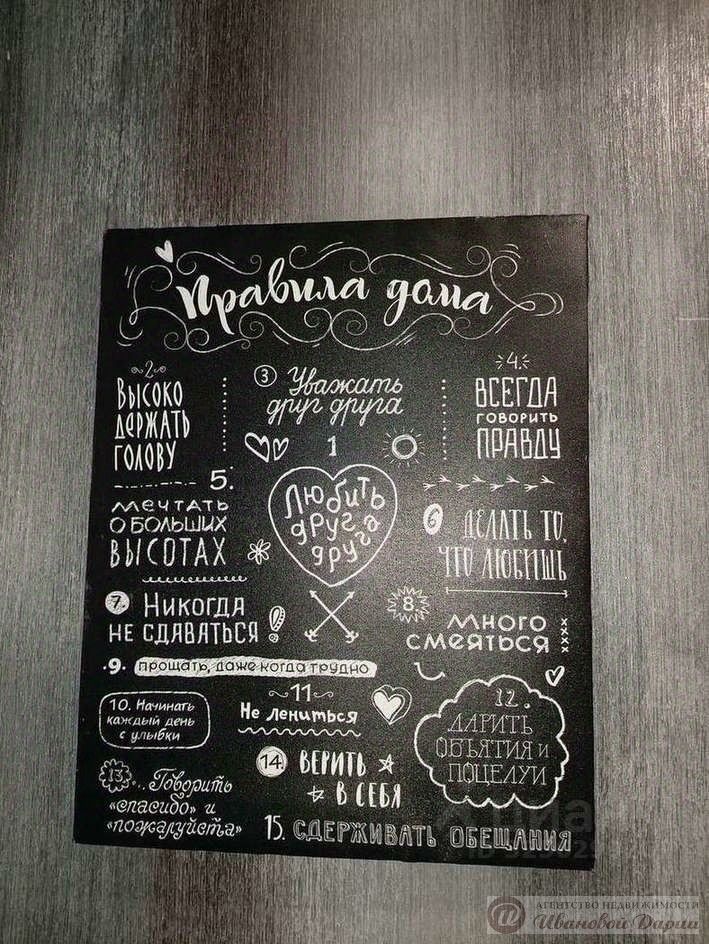 Правила дома
2
Высоко
держать
голову
3 Уважать
друг друга
4.
ВСЕГДА
ГОВОРИТЬ
ПРАВДУ
1
Любить
друг
друга
5.
мечтать
о больших
высотах
6 делать то,
что любишь
7. Никогда
не сдаваться
8.
много
смеяться
9. прощать, даже когда трудно
10. Начинать
каждый день
с улыбки
11
Не лениться
12.
ДАРИТЬ
ОБЪЯТИЯ И
ПОЦЕЛУИ
13. Говорить
«спасибо» и
«пожалуйста»
14 ВЕРИТЬ
В СЕБЯ
15. СДЕРЖИВАТЬ ОБЕЩАНИЯ
циан
АГЕНТСТВО НЕДВИЖИМОСТИ
Ивановой Дарьи